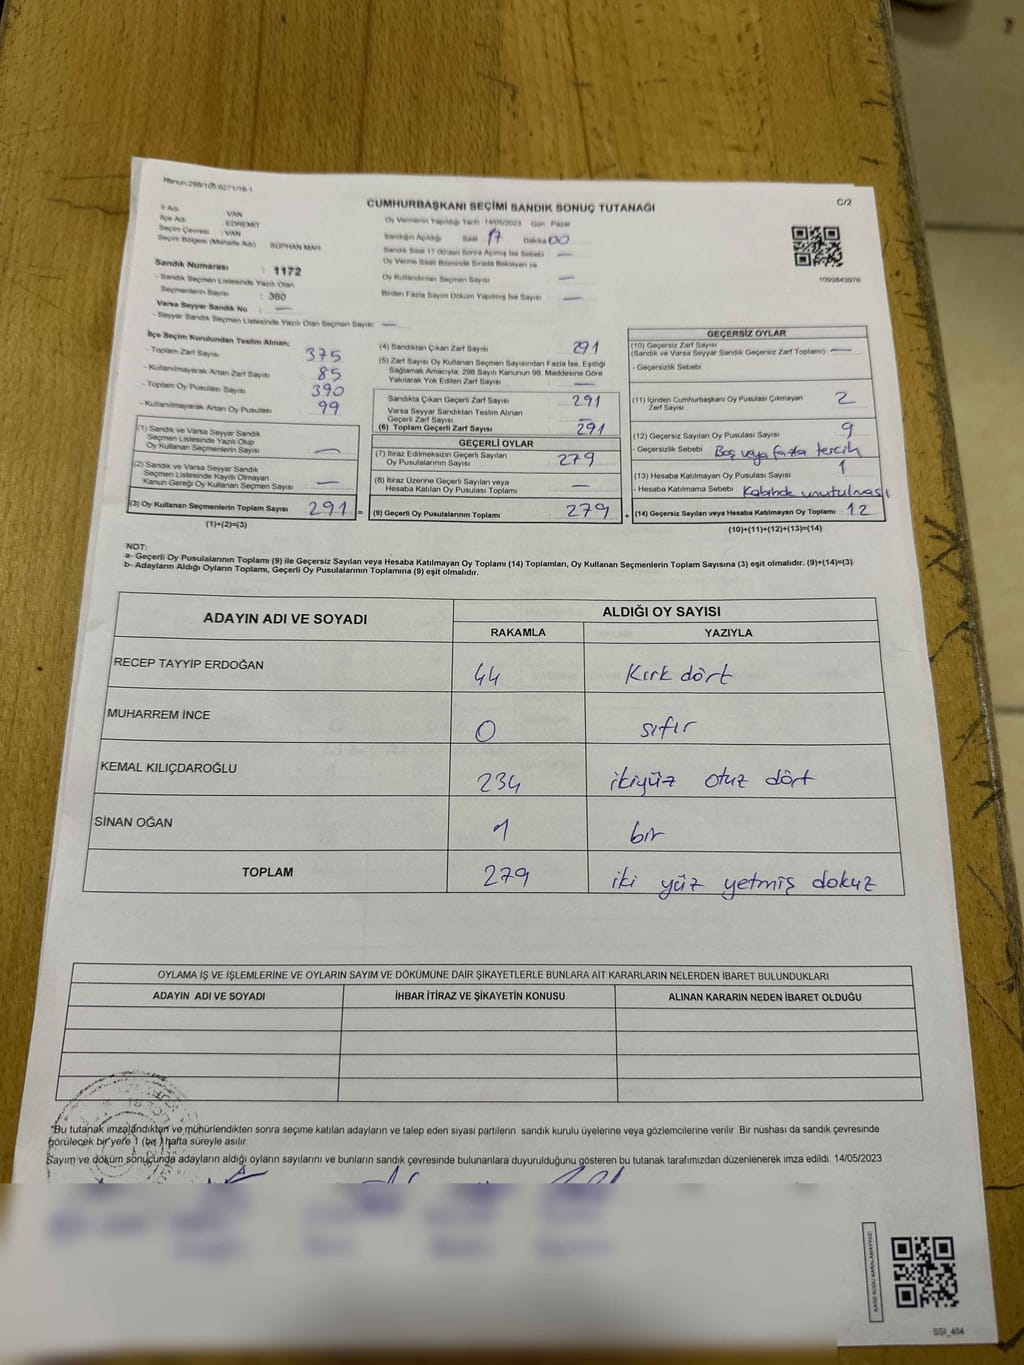 Kanun 298/105 6271/18-1
C/2
CUMHURBAŞKANI SEÇİMİ SANDIK SONUÇ TUTANAĞI
İl Adı : VAN
İlçe Adı : EDREMİT
Seçim Çevresi : VAN
Seçim Bölgesi (Mahalle Adı) : SÜPHAN MAH
Oy Vermenin Yapıldığı Tarih 14/05/2023 Gün Pazar
Sandığın Açıldığı Saat 17 Dakika 00
Sandık Saat 17:00'den Sonra Açılmış İse Sebebi —
Oy Verme Saati Bitiminde Sırada Bekleyen ve
Oy Kullandırılan Seçmen Sayısı —
Birden Fazla Sayım Döküm Yapılmış İse Sayısı —
1093843976
Sandık Numarası : 1172
- Sandık Seçmen Listesinde Yazılı Olan
Seçmenlerin Sayısı : 360
Varsa Seyyar Sandık No : —
- Seyyar Sandık Seçmen Listesinde Yazılı Olan Seçmen Sayısı: —
İlçe Seçim Kurulundan Teslim Alınan;
- Toplam Zarf Sayısı 375
- Kullanılmayarak Artan Zarf Sayısı : 85
- Toplam Oy Pusulası Sayısı 390
- Kullanılmayarak Artan Oy Pusulası : 99
(1) Sandık ve Varsa Seyyar Sandık
Seçmen Listesinde Yazılı Olup
Oy Kullanan Seçmenlerin Sayısı : —
(2) Sandık ve Varsa Seyyar Sandık
Seçmen Listesinde Kayıtlı Olmayan
Kanun Gereği Oy Kullanan Seçmen Sayısı : —
(3) Oy Kullanan Seçmenlerin Toplam Sayısı : 291 =
(1)+(2)=(3)
(4) Sandıktan Çıkan Zarf Sayısı : 291
(5) Zarf Sayısı Oy Kullanan Seçmen Sayısından Fazla İse, Eşitliği
Sağlamak Amacıyla, 298 Sayılı Kanunun 98. Maddesine Göre
Yakılarak Yok Edilen Zarf Sayısı : —
Sandıkta Çıkan Geçerli Zarf Sayısı : 291
Varsa Seyyar Sandıktan Teslim Alınan
Geçerli Zarf Sayısı : —
(6) Toplam Geçerli Zarf Sayısı : 291
GEÇERLİ OYLAR
(7) İtiraz Edilmeksizin Geçerli Sayılan
Oy Pusulalarının Sayısı : 279
(8) İtiraz Üzerine Geçerli Sayılan veya
Hesaba Katılan Oy Pusulası Toplamı : —
(9) Geçerli Oy Pusulalarının Toplamı : 279 +
GEÇERSİZ OYLAR
(10) Geçersiz Zarf Sayısı
(Sandık ve Varsa Seyyar Sandık Geçersiz Zarf Toplamı) : —
- Geçersizlik Sebebi
(11) İçinden Cumhurbaşkanı Oy Pusulası Çıkmayan
Zarf Sayısı : 2
(12) Geçersiz Sayılan Oy Pusulası Sayısı : 9
- Geçersizlik Sebebi : Boş veya fazla tercih
(13) Hesaba Katılmayan Oy Pusulası Sayısı : 1
- Hesaba Katılmama Sebebi : Kabinde unutulması
(14) Geçersiz Sayılan veya Hesaba Katılmayan Oy Toplamı : 12
(10)+(11)+(12)+(13)=(14)
NOT:
a- Geçerli Oy Pusulalarının Toplamı (9) ile Geçersiz Sayılan veya Hesaba Katılmayan Oy Pusulası Toplamı (14) Toplamları, Oy Kullanan Seçmenlerin Toplam Sayısına (3) eşit olmalıdır. (9)+(14)=(3)
b- Adayların Aldığı Oyların Toplamı, Geçerli Oy Pusulalarının Toplamına (9) eşit olmalıdır.
ADAYIN ADI VE SOYADI
ALDIĞI OY SAYISI
RAKAMLA YAZIYLA
RECEP TAYYİP ERDOĞAN 44 Kırk dört
MUHARREM İNCE 0 sıfır
KEMAL KILIÇDAROĞLU 234 ikiyüz otuz dört
SİNAN OĞAN 1 bir
TOPLAM 279 iki yüz yetmiş dokuz
OYLAMA İŞ VE İŞLEMLERİNE VE OYLARIN SAYIM VE DÖKÜMÜNE DAİR ŞİKAYETLERLE BUNLARA AİT KARARLARIN NELERDEN İBARET BULUNDUKLARI
ADAYIN ADI VE SOYADI İHBAR İTİRAZ VE ŞİKAYETİN KONUSU ALINAN KARARIN NEDEN İBARET OLDUĞU
*Bu tutanak imzalandıktan ve mühürlendikten sonra seçime katılan adayların ve talep eden siyasi partilerin sandık kurulu üyelerine veya gözlemcilerine verilir .Bir nüshası da sandık çevresinde
görülecek bir yere 1 (bir) hafta süreyle asılır.
Sayım ve döküm sonucunda adayların aldığı oyların sayılarını ve bunların sandık çevresinde bulunanlara duyurulduğunu gösteren bu tutanak tarafımızdan düzenlenerek imza edildi. 14/05/2023
KARE KODU KARALAMAYINIZ!
SSI_404